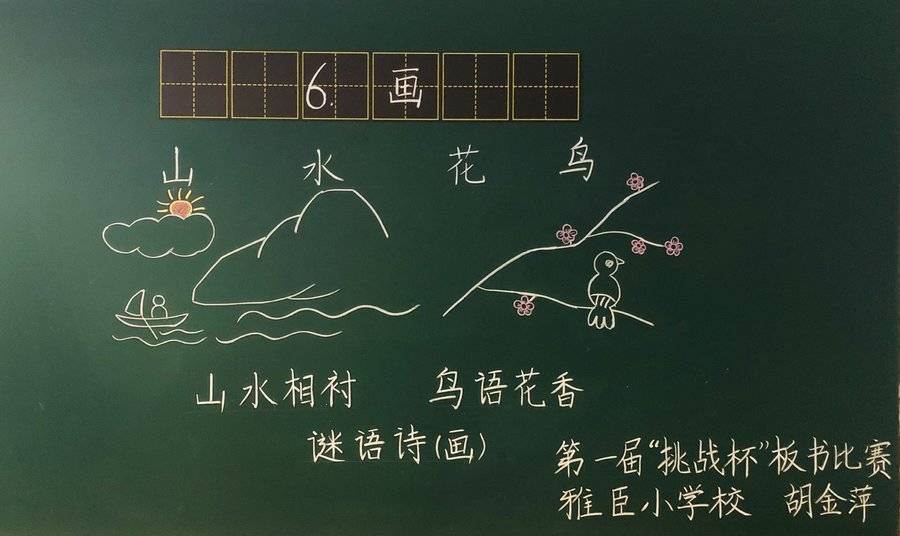 6. 画
山 水 花 鸟
山水相衬 鸟语花香
谜语诗(画)
第一届“挑战杯”板书比赛
雅臣小学校 胡金萍